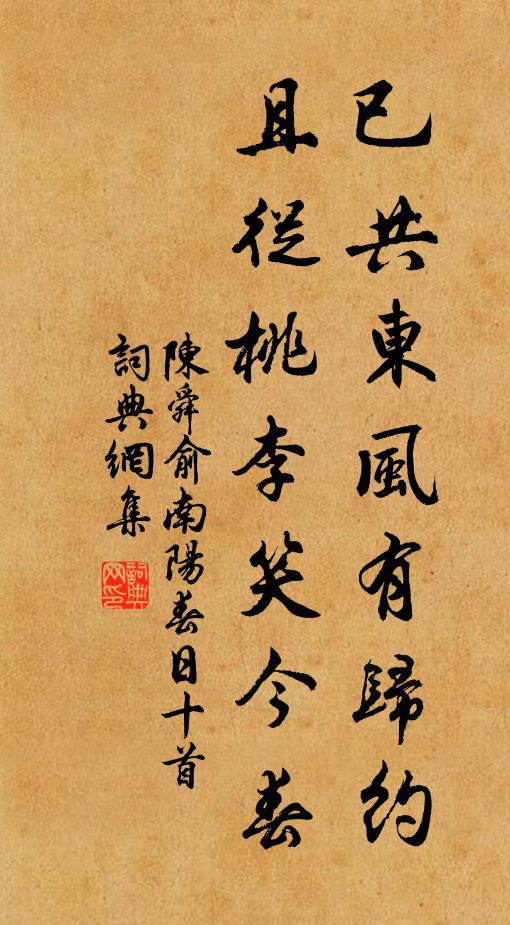 已共東風有歸約
且從桃李笑今春
陳舜俞南陽春日十首
詞典網集
詞典
网印